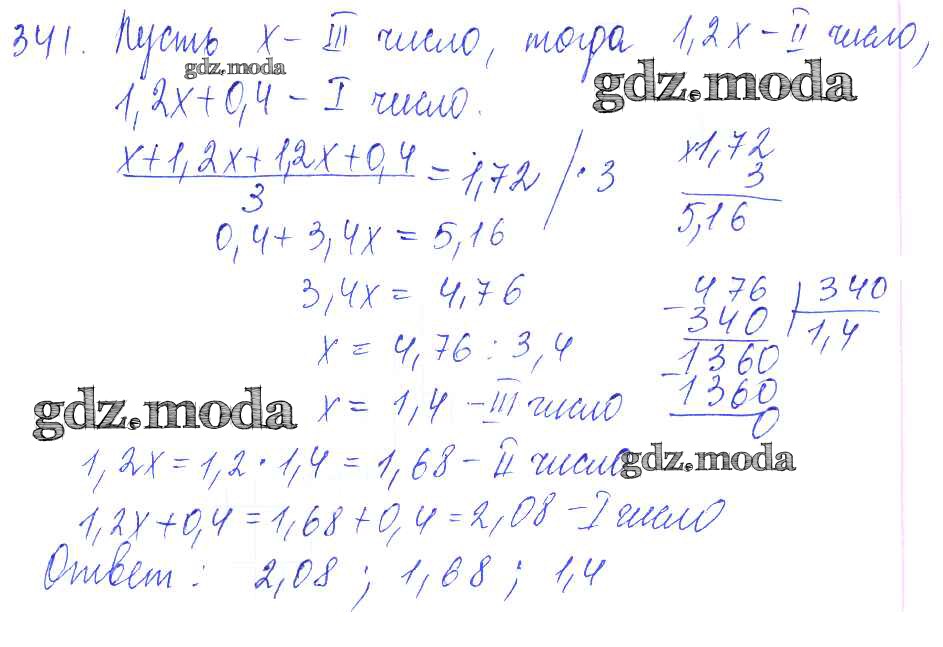 341. Пусть x - III число, тогда 1,2x - II число,
gdz.moda
gdz.moda
1,2x+0,4 - I число.
x+1,2x+1,2x+0,4
3
= 1,72 / · 3
x1,72
3
5,16
0,4 + 3,4x = 5,16
3,4x = 4,76
x = 4,76 : 3,4
- 476 | 340
340 1,4
- 1360
1360
0
gdz.moda
x = 1,4 - III число
1,2x = 1,2 · 1,4 = 1,68 - II число
gdz.moda
1,2x+0,4 = 1,68+0,4 = 2,08 - I число
Ответ: 2,08; 1,68; 1,4